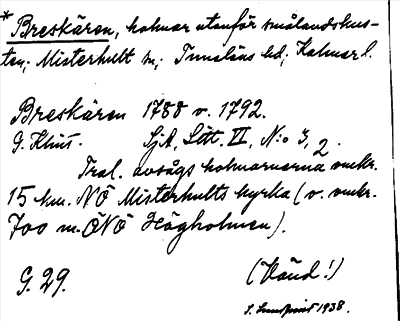 * Breskären, holmar utanför smålandskus-
ten; Misterhult sn; Tunaläns hd; Kalmar l.
Breskären 1788 v. 1792.
G. Klint. SjA, Litt. VI, N:o 3, 2.
Trol. avsågs holmarna omkr.
15 km. NÖ Misterhults kyrka (v. omkr.
700 m. ÖNÖ Högholmen).
G. 29. (Vänd!)
S. Lundqvist 1938.